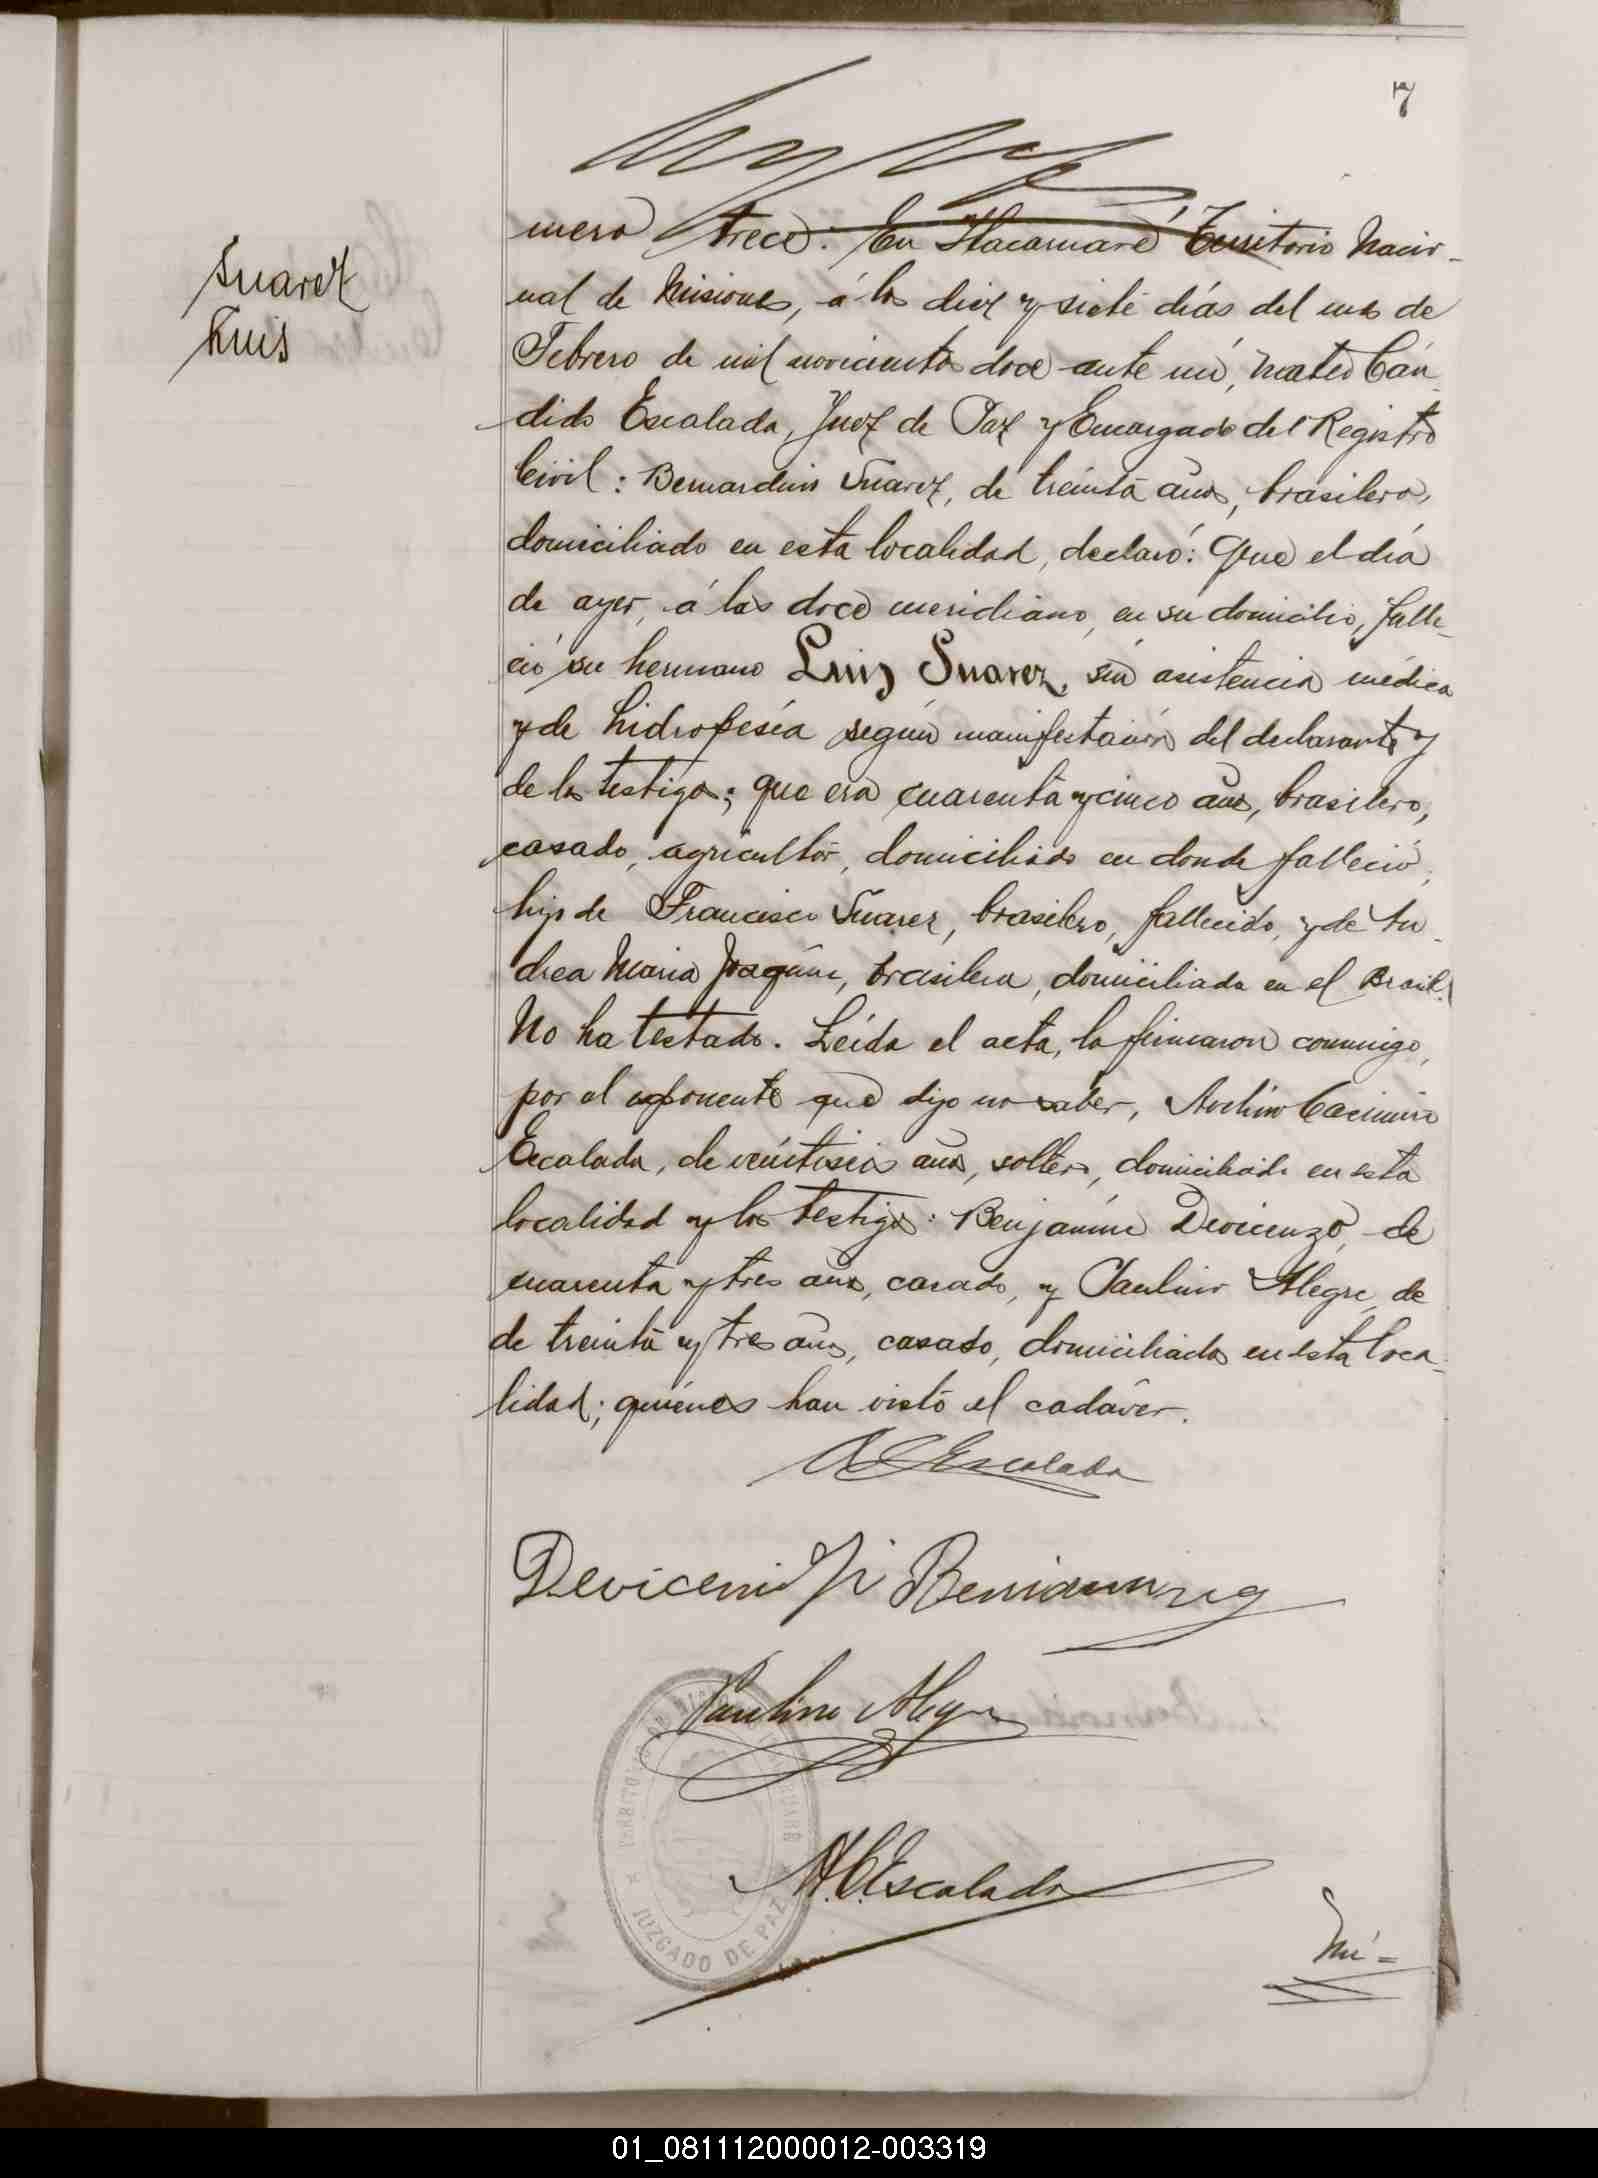 7
Suarez
Luis
mero trece: En Itacaruaré Territorio Nacio-
nal de Misiones, á los diez y siete días del mes de
Febrero de mil novecientos doce ante mí, Mateo Cán-
dido Escalada, Juez de Paz y Encargado del Registro
Civil: Bernardino Suarez, de treinta años, brasilero,
domiciliado en esta localidad, declaró: Que el día
de ayer, á las doce meridiano, en su domicilio, falle-
ció su hermano Luis Suarez, sin asistencia médica
y de hidropesía según manifestación del declarante y
de los testigos; que era cuarenta y cinco años, brasilero,
casado, agricultor, domiciliado en donde falleció,
hijo de Francisco Suarez, brasilero, fallecido, y de An-
drea Maria Joaquina, brasilera, domiciliada en el Brasil.
No ha testado. Leída el acta, la firmaron conmigo,
por el exponente que dijo no saber, Casimiro
Escalada, de veintiseis años, soltero, domiciliado en esta
localidad y los testigos: Benjamin Devicenzo, de
cuarenta y tres años, casado, y Paulino Alegre, de
de treinta y tres años, casado, domiciliados en esta loca-
lidad; quiénes han visto el cadáver.
A C Escalada
Devicenzi Beniamino
Paulino Alegre
M. C. Escalada
TERRITORIO DE MISIONES
JUZGADO DE PAZ
Nú=
01_081112000012-003319